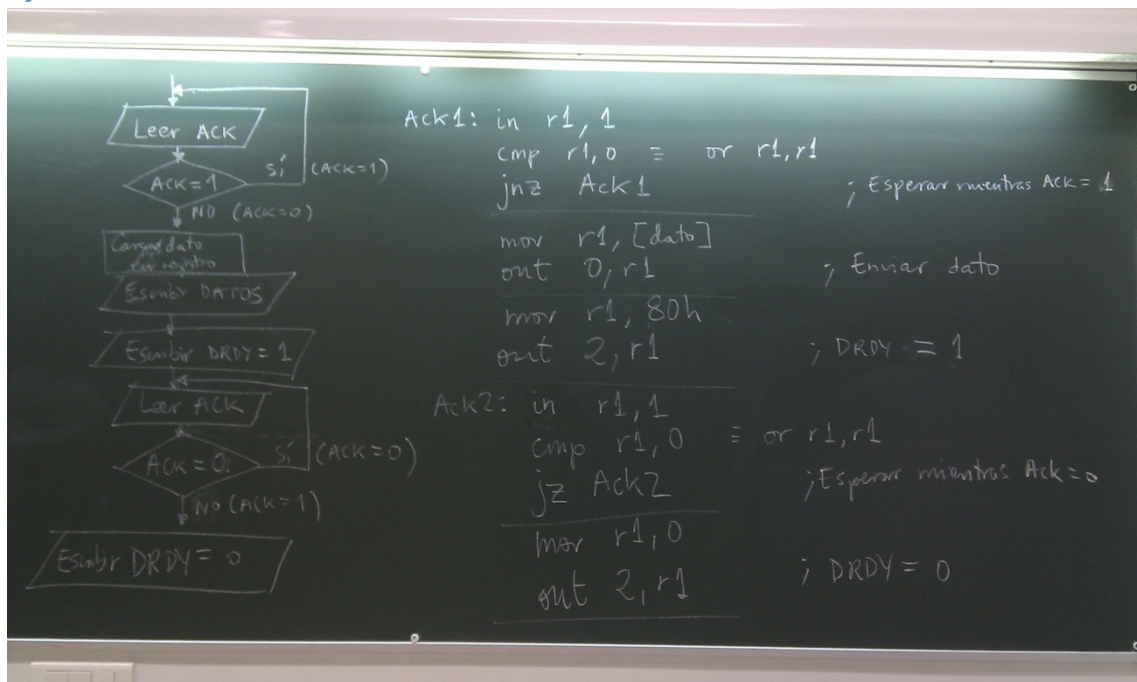 Leer ACK
ACK=1
sí (ACK=1)
NO (ACK=0)
Cargar dato
en registro
Escribir DATOS
Escribir DRDY=1
Leer ACK
ACK=0
sí (ACK=0)
NO (ACK=1)
Escribir DRDY=0
Ack1: in r1, 1
cmp r1,0 ≡ or r1,r1
jnz Ack1 ; Esperar mientras Ack=1
mov r1, [dato]
out 0, r1 ; Enviar dato
mov r1, 80h
out 2, r1 ; DRDY = 1
Ack2: in r1, 1
cmp r1, 0 ≡ or r1,r1
jz Ack2 ; Esperar mientras Ack=0
mov r1, 0
out 2, r1 ; DRDY = 0